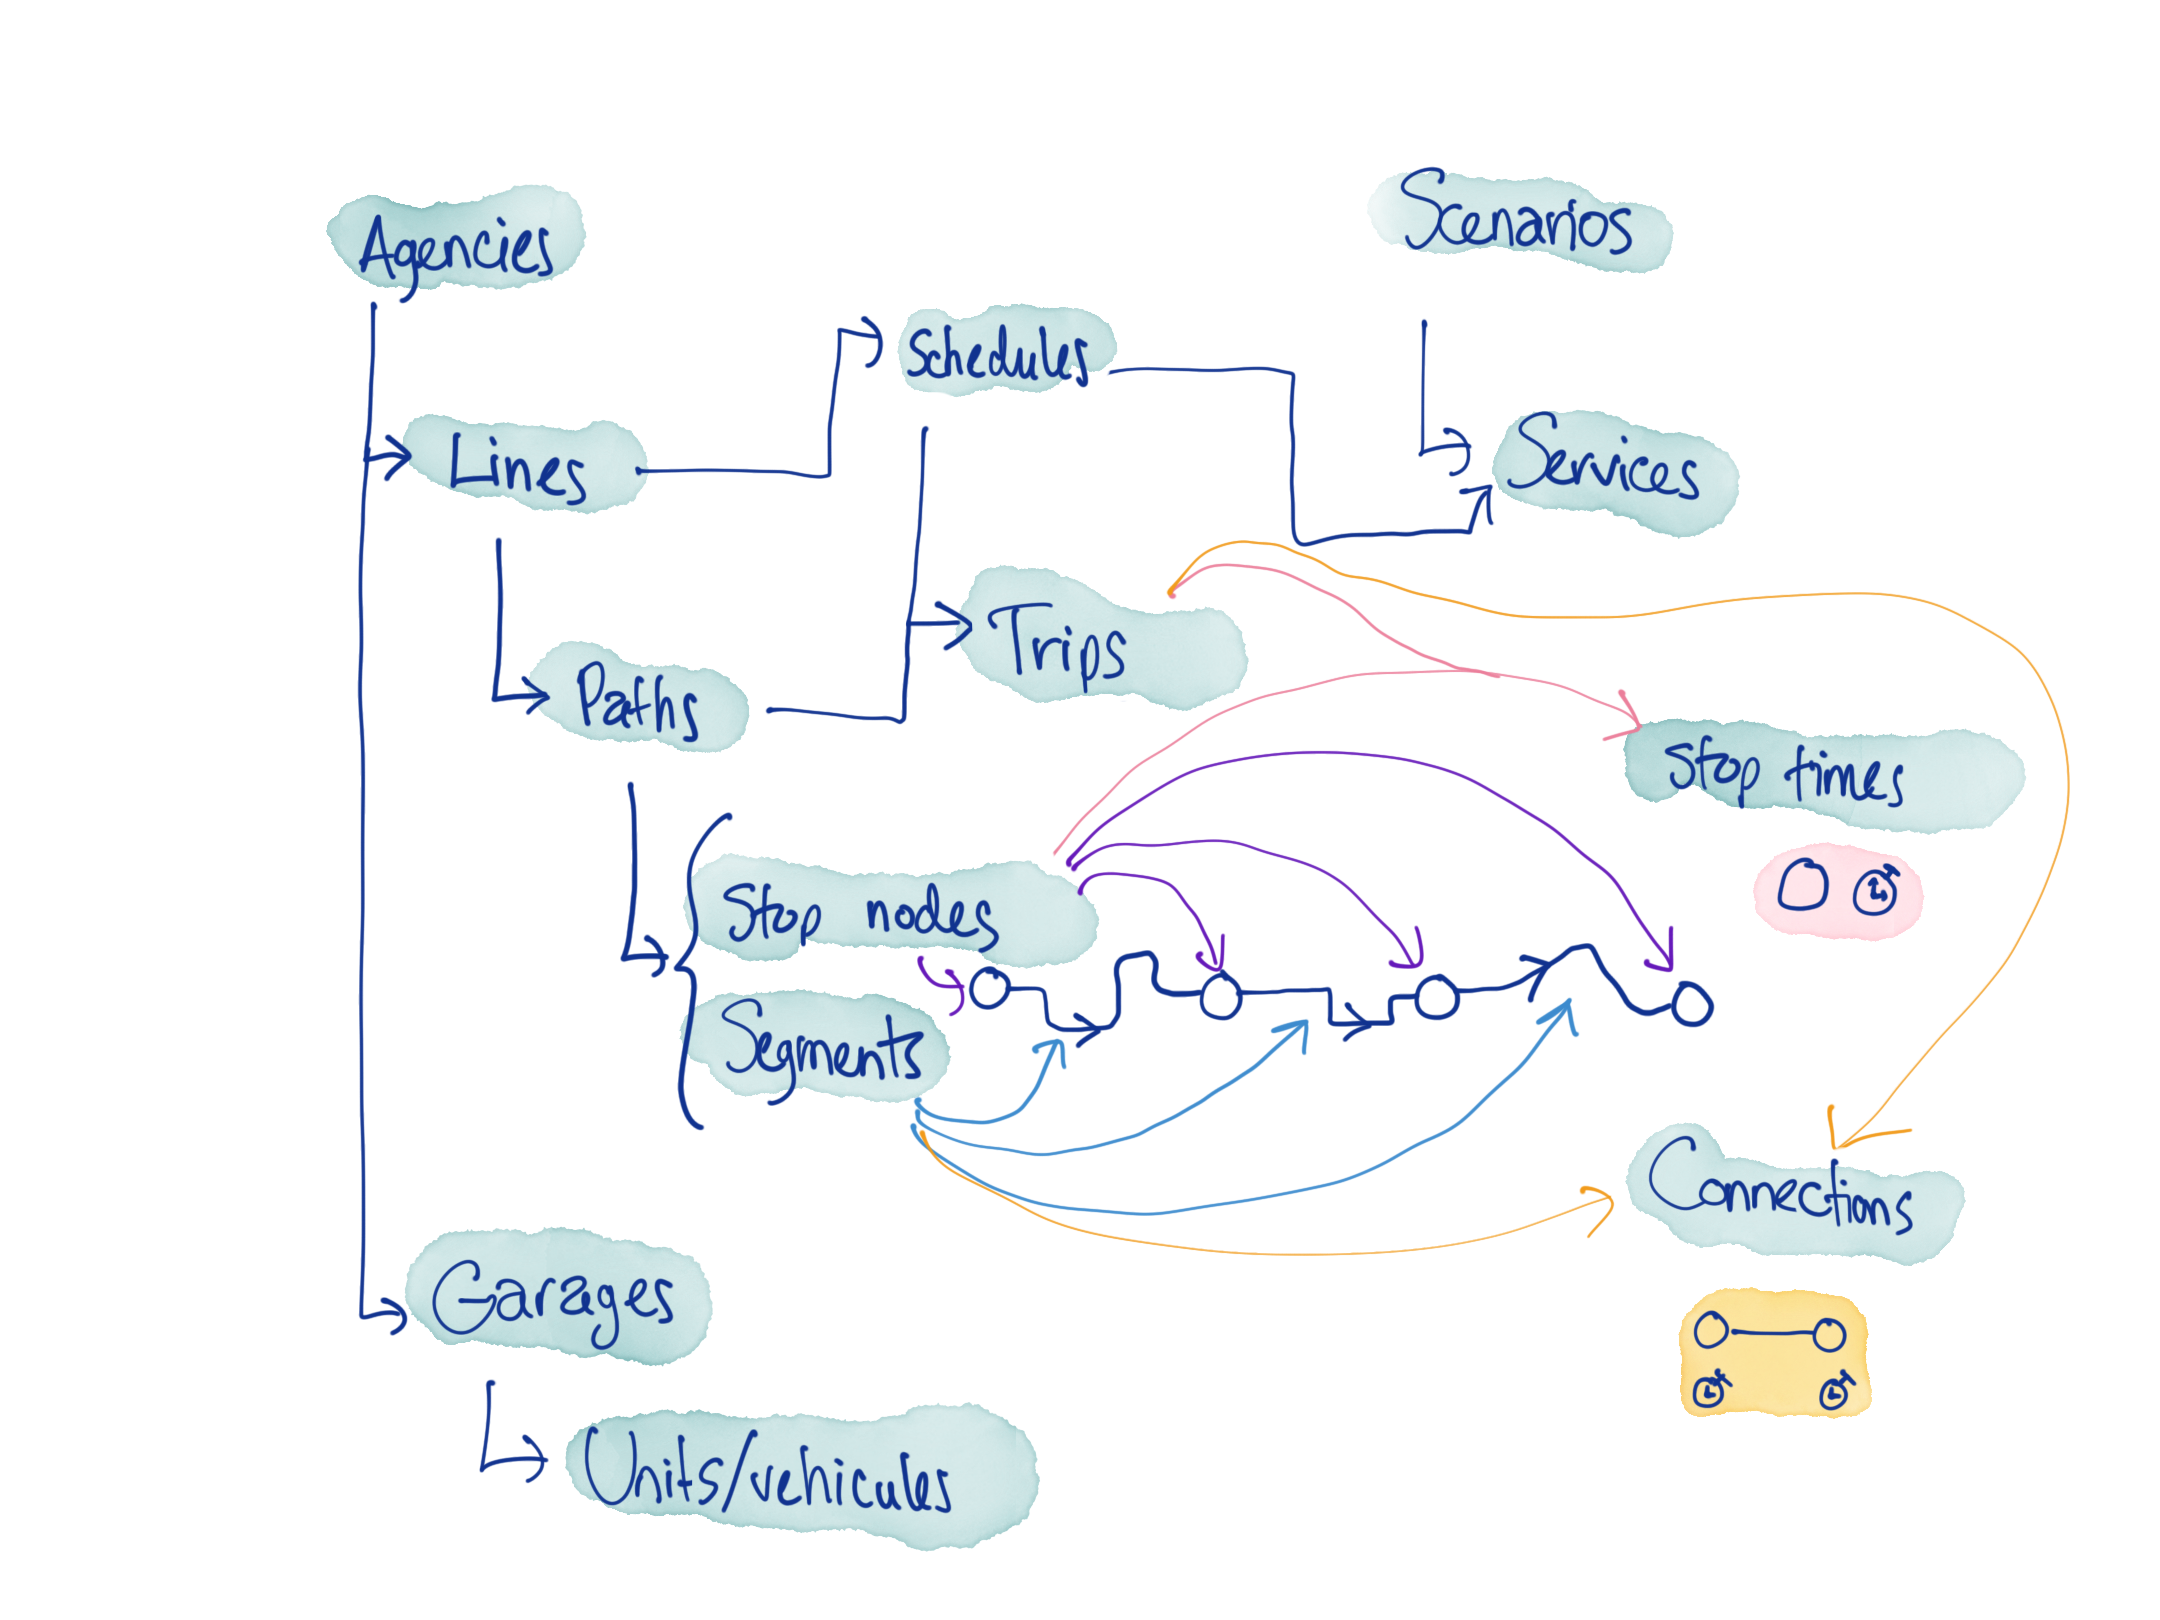 Agencies
Scenarios
Schedules
Lines
Services
Trips
Paths
Stop times
Stop nodes
Segments
Connections
Garages
Units/vehicules